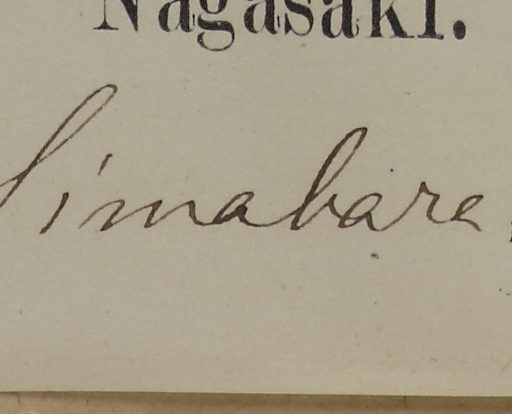 Nagasaki.
Simabara